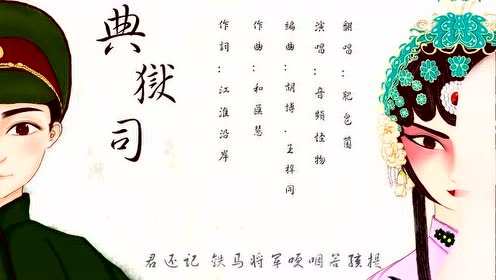 典獄司
作詞：江淮沿岸
作曲：和匯慧
編曲：胡博．王梓同
演唱：音頻怪物
翻唱：肥皂菌
君还记 铁马将军哽咽若孩提